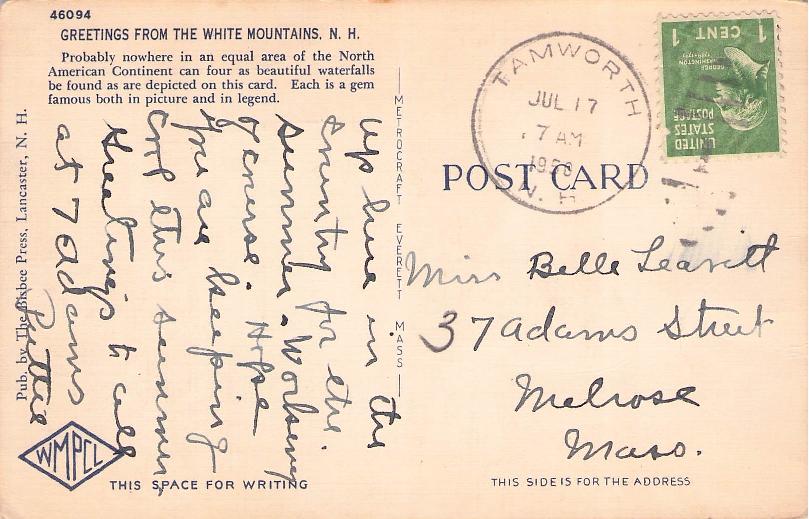 46094
GREETINGS FROM THE WHITE MOUNTAINS, N. H.
Probably nowhere in an equal area of the North
American Continent can four as beautiful waterfalls
be found as are depicted on this card. Each is a gem
famous both in picture and in legend.
Up here in the
Country for the
summer. Working
of course. Hope
you are keeping
cool this summer,
Greetings to all
at 7 Adams
Pub. by The Bisbee Press, Lancaster, N. H.
WMPCL
THIS SPACE FOR WRITING
METROCRAFT EVERETT MASS
TAMWORTH
JUL 17
7 AM
N. H.
1 CENT 1
GEORGE
WASHINGTON
UNITED
STATES
POSTAGE
POST CARD
Miss Belle Leavitt
37 Adams Street
Melrose
Mass.
THIS SIDE IS FOR THE ADDRESS